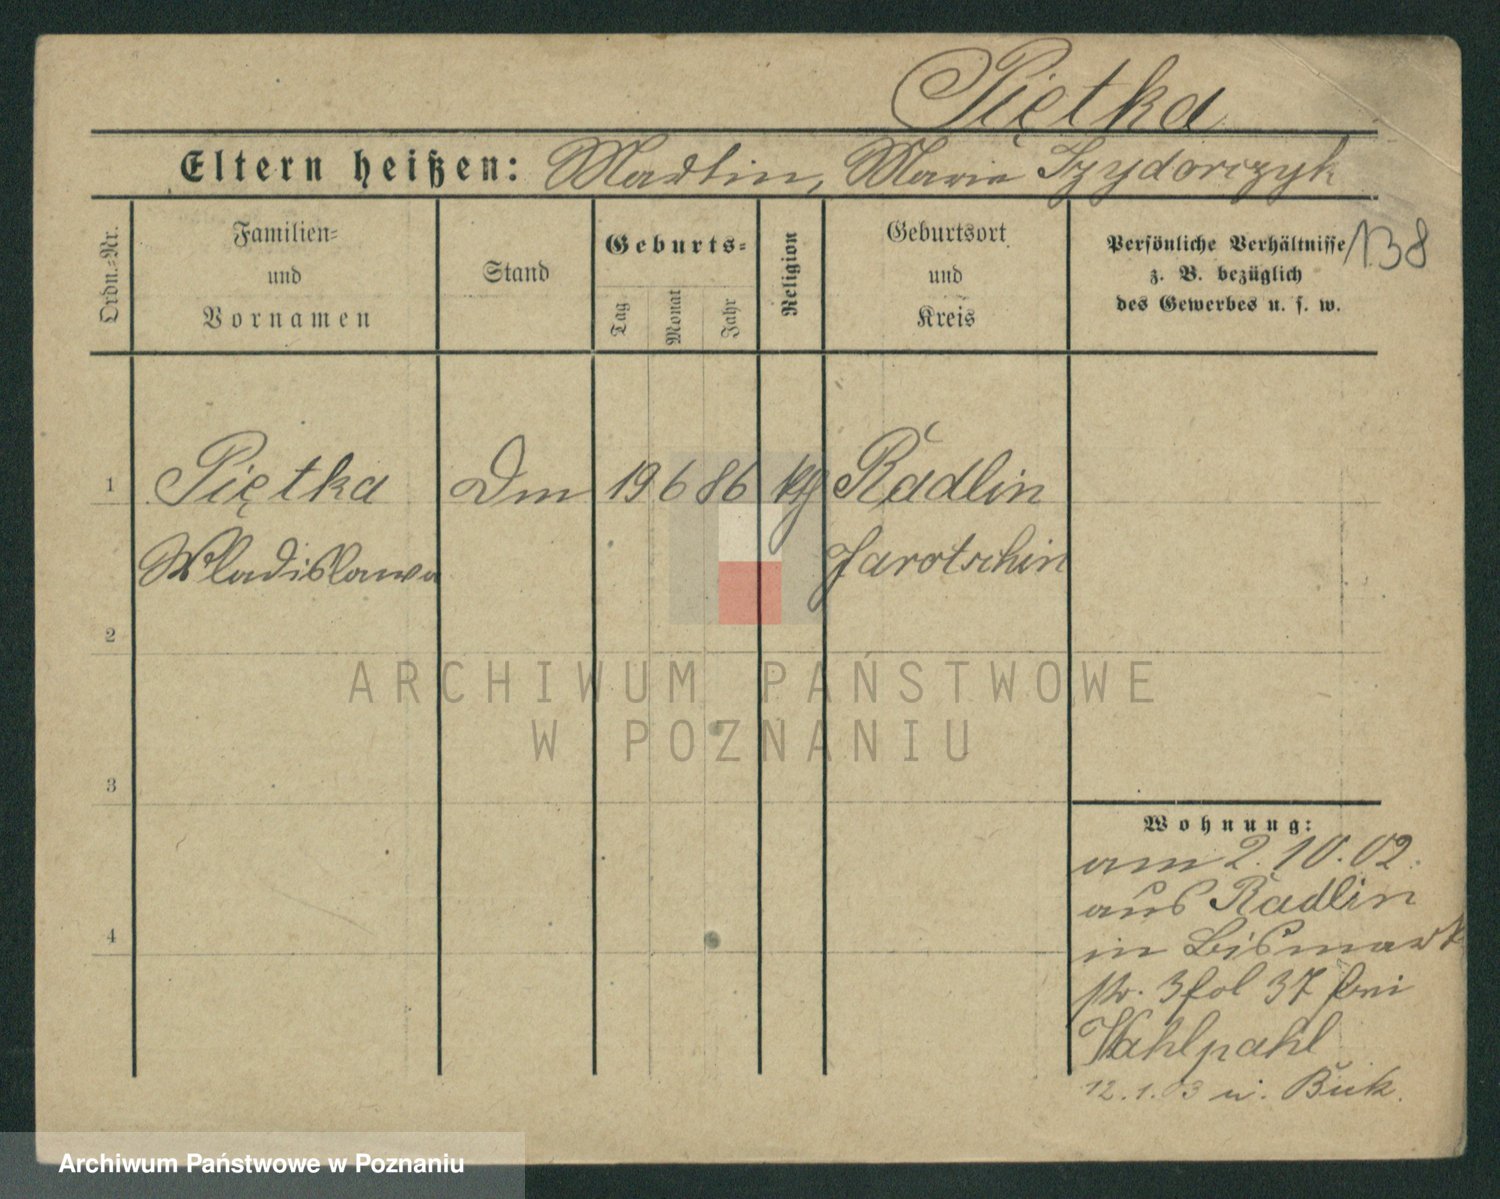 Piętka
Eltern heißen: Martin, Maria Izydorczyk
Ordn.-Nr.
Familien-
und
Vornamen
Stand
Geburts-
Tag
Monat
Jahr
Religion
Geburtsort
und
Kreis
Persönliche Verhältnisse
z. B. bezüglich
des Gewerbes u. s. w.
138
1 Piętka Dm 19 6 86 kth Radlin
Wladislawa Jarotschin
2
ARCHIWUM PAŃSTWOWE
W POZNANIU
3
Wohnung:
am 2.10.02.
aus Radlin
in Bismark
str. 3 fol 37 bei
Wahlpahl
12.1.03 n. Buk.
4
Archiwum Państwowe w Poznaniu